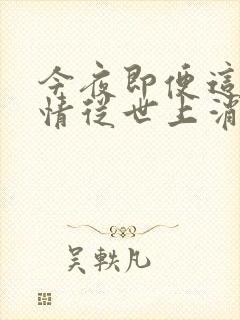 今夜即便這
情從世上消
吳軼凡